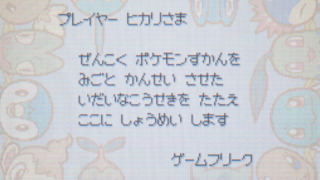 プレイヤー ヒカリさま
ぜんこく ポケモンずかんを
みごと かんせい させた
いだいなこうせきを たたえ
ここに しょうめい します
ゲームフリーク